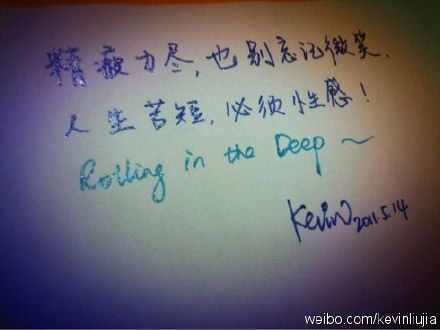 精疲力尽，也别忘记微笑.
人生苦短，必须性感！
Rolling in the Deep ～
Kevin 2011.5.14
weibo.com/kevinliujia